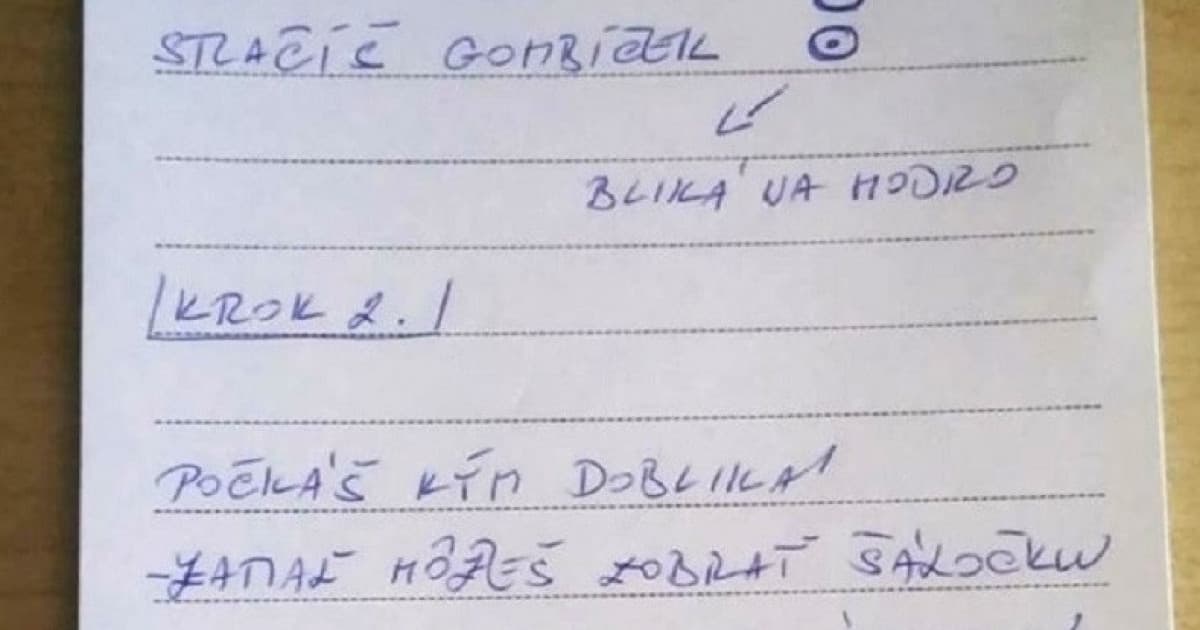 STLAČÍŠ GOMBÍČEK
BLIKÁ NA MODRO
KROK 2.
POČKÁŠ KÝM DOBLIKÁ
-ZATIAĽ MÔŽEŠ ZOBRAŤ ŠÁLOČKU